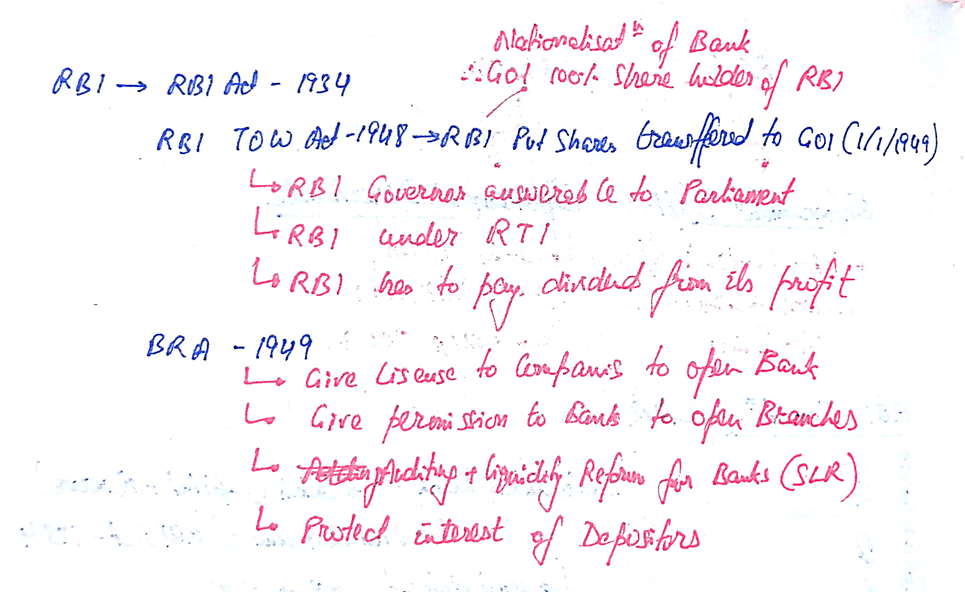 Nationalisatⁿ of Bank
∴ GOI 100% Share holder of RBI
RBI → RBI Act - 1934
RBI TOW Act - 1948 → RBI Pvt Shares transffered to GOI (1/1/1949)
↳ RBI Governor answerable to Parliament
↳ RBI under RTI
↳ RBI has to pay dividend from its profit
BRA - 1949
↳ Give Lisense to Companis to open Bank
↳ Give permission to Bank to open Branches
↳ Auditing + liquidity Reform for Banks (SLR)
↳ Protect interest of Depositors